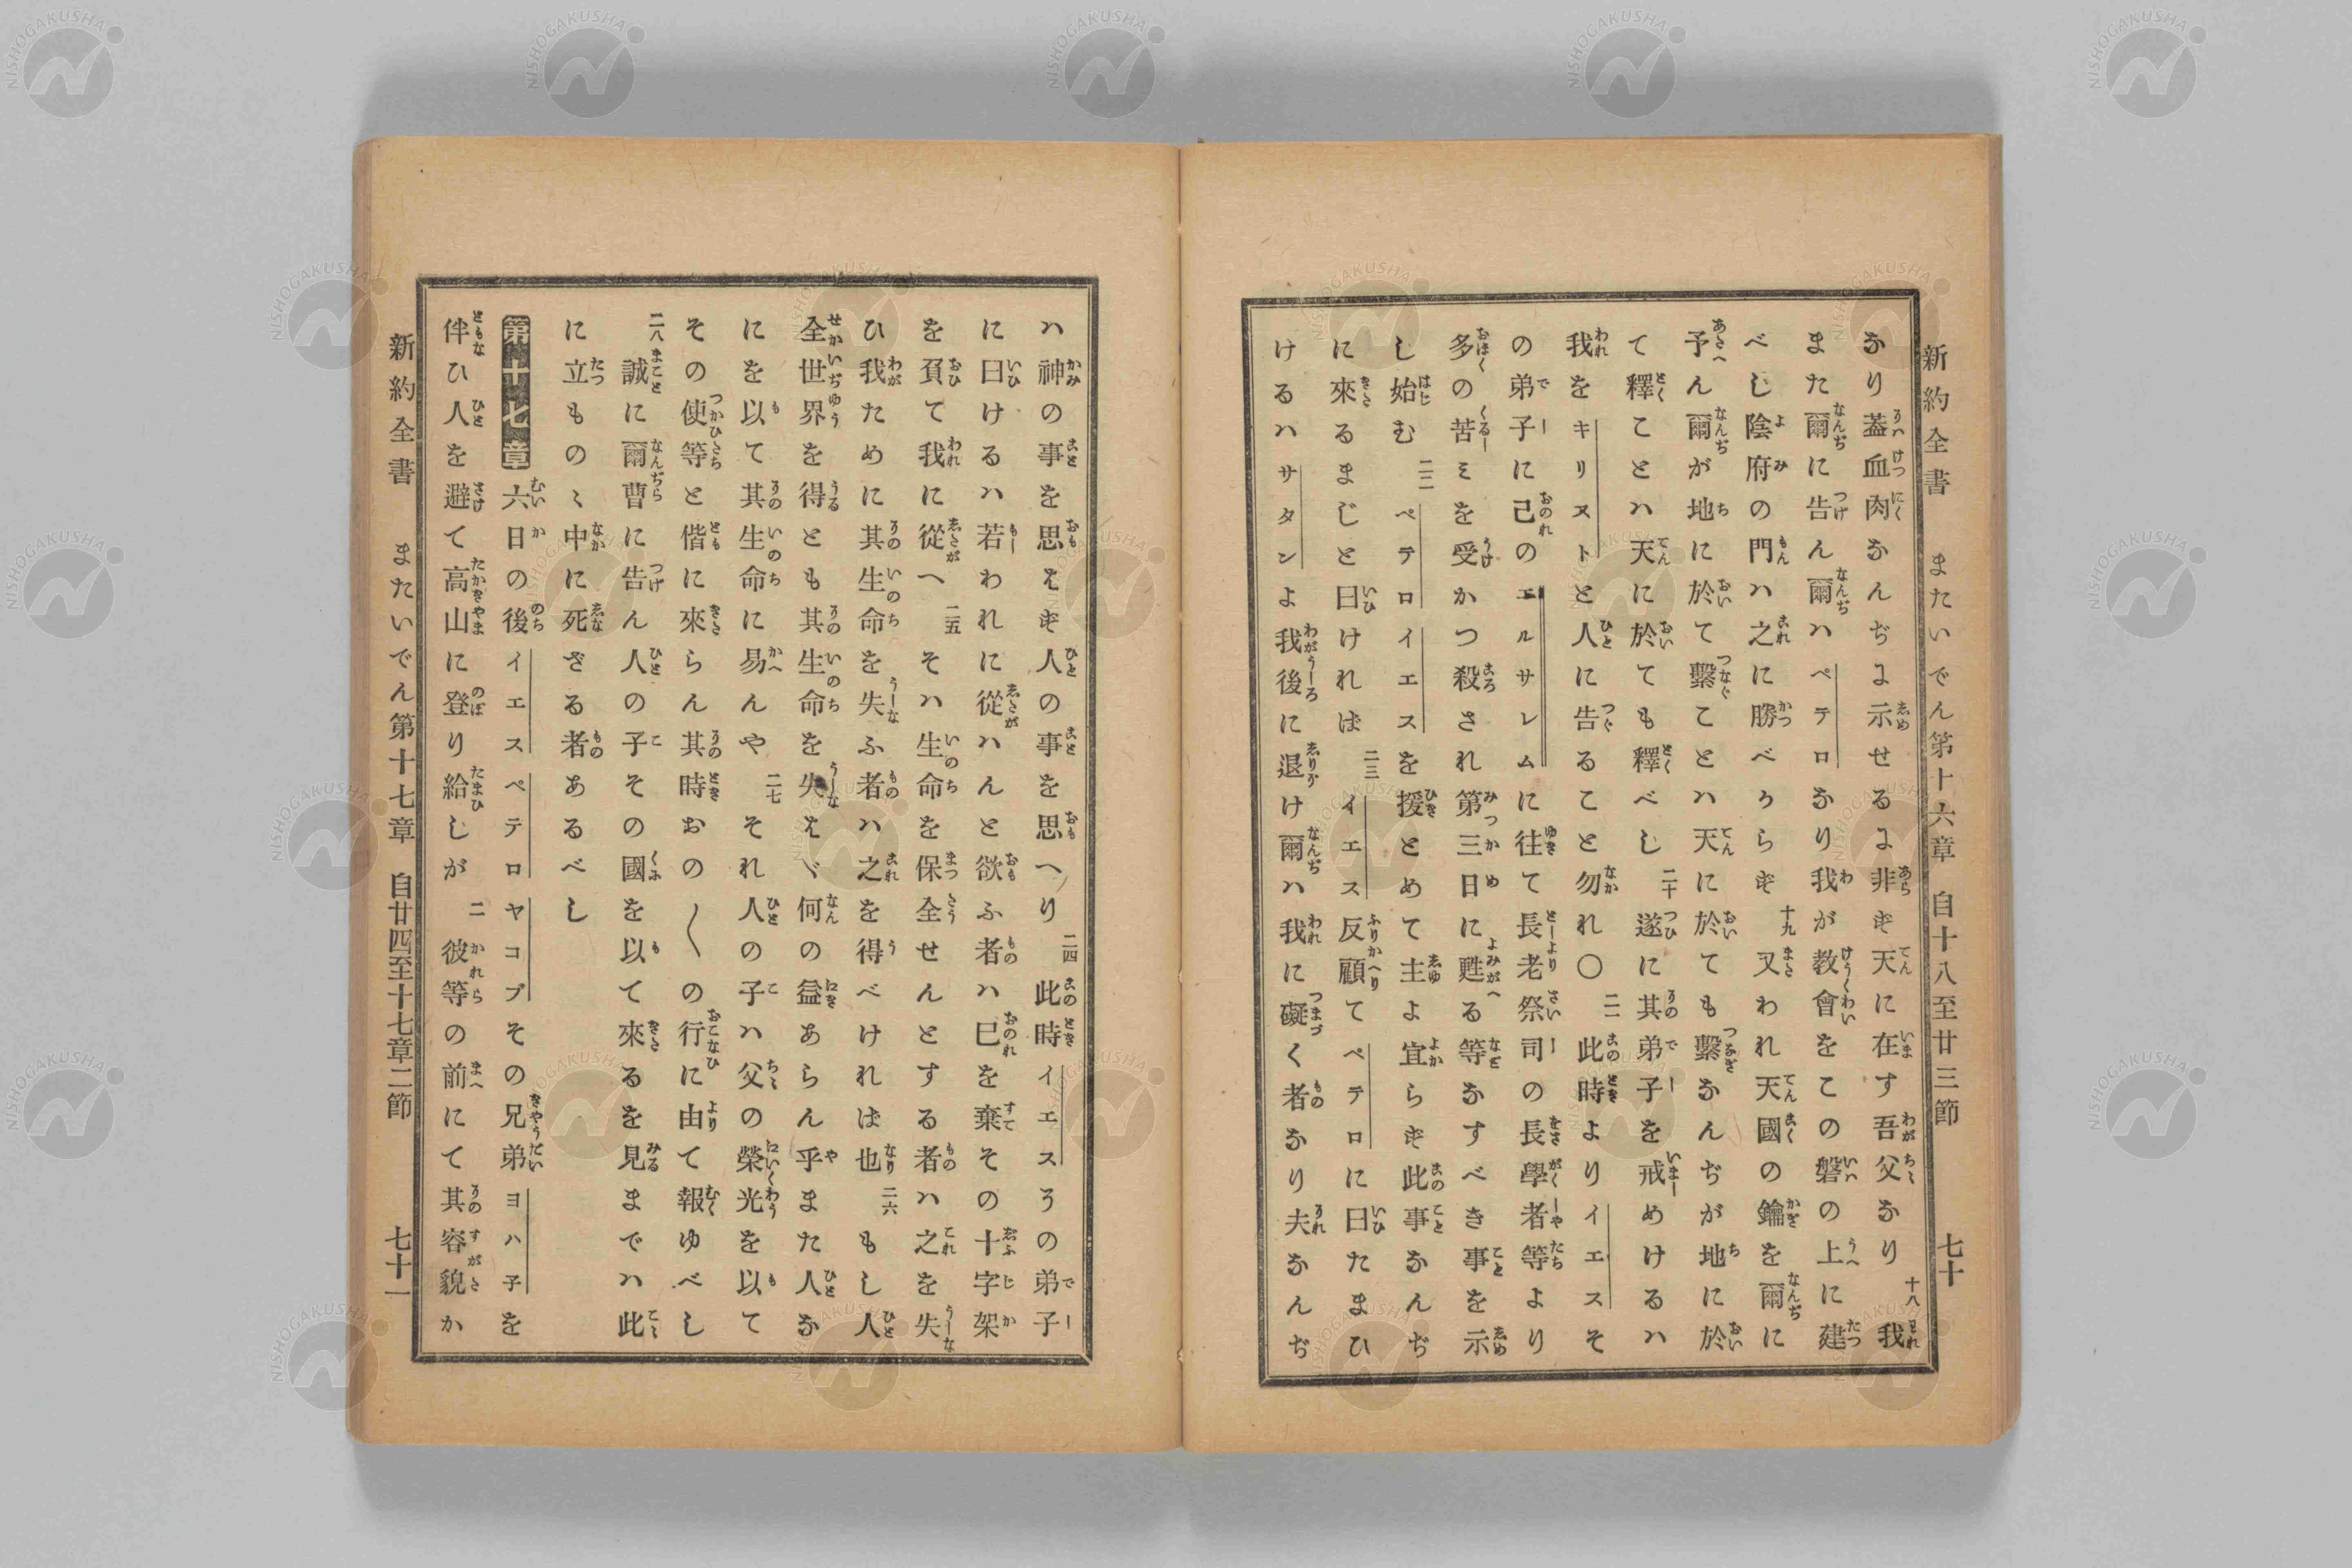 新約全書 またいでん第十六章 自十八至廿三節 七十
なり蓋血肉なんぢに示せるに非ず天に在す吾父なり 十八 我
また爾に告ん爾ハペテロなり我が教會をこの磐の上に建
べし陰府の門ハ之に勝べからず 十九 又われ天國の鑰を爾に
予ん爾が地に於て繫ことハ天に於ても繫なんぢが地に於
て釋ことハ天に於ても釋べし 二十 遂に其弟子を戒めけるハ
我をキリストと人に告ること勿れ〇 二一 此時よりイエスそ
の弟子に己のエルサレムに往て長老祭司の長學者等より
多の苦ミを受かつ殺され第三日に甦る等なすべき事を示
し始む 二二 ペテロイエスを援とめて主よ宜らず此事なんぢ
に來るまじと曰ければ 二三 イエス反顧てペテロに曰たまひ
けるハサタンよ我後に退け爾ハ我に礙く者なり夫なんぢ
ハ神の事を思はず人の事を思へり 二四 此時イエスその弟子
に曰けるハ若われに從ハんと欲ふ者ハ己を棄その十字架
を負て我に從へ 二五 そハ生命を保全せんとする者ハ之を失
ひ我ために其生命を失ふ者ハ之を得べければ也 二六 もし人
全世界を得とも其生命を失はゞ何の益あらん乎また人な
にを以て其生命に易んや 二七 それ人の子ハ父の榮光を以て
その使等と偕に來らん其時おの〱の行に由て報ゆべし
二八 誠に爾曹に告ん人の子その國を以て來るを見までハ此
に立ものゝ中に死ざる者あるべし
第十七章 六日の後イエスペテロヤコブその兄弟ヨハ子を
伴ひ人を避て高山に登り給しが 二 彼等の前にて其容貌か
新約全書 またいでん第十七章 自廿四至十七章二節 七十一
NISHOGAKUSHA